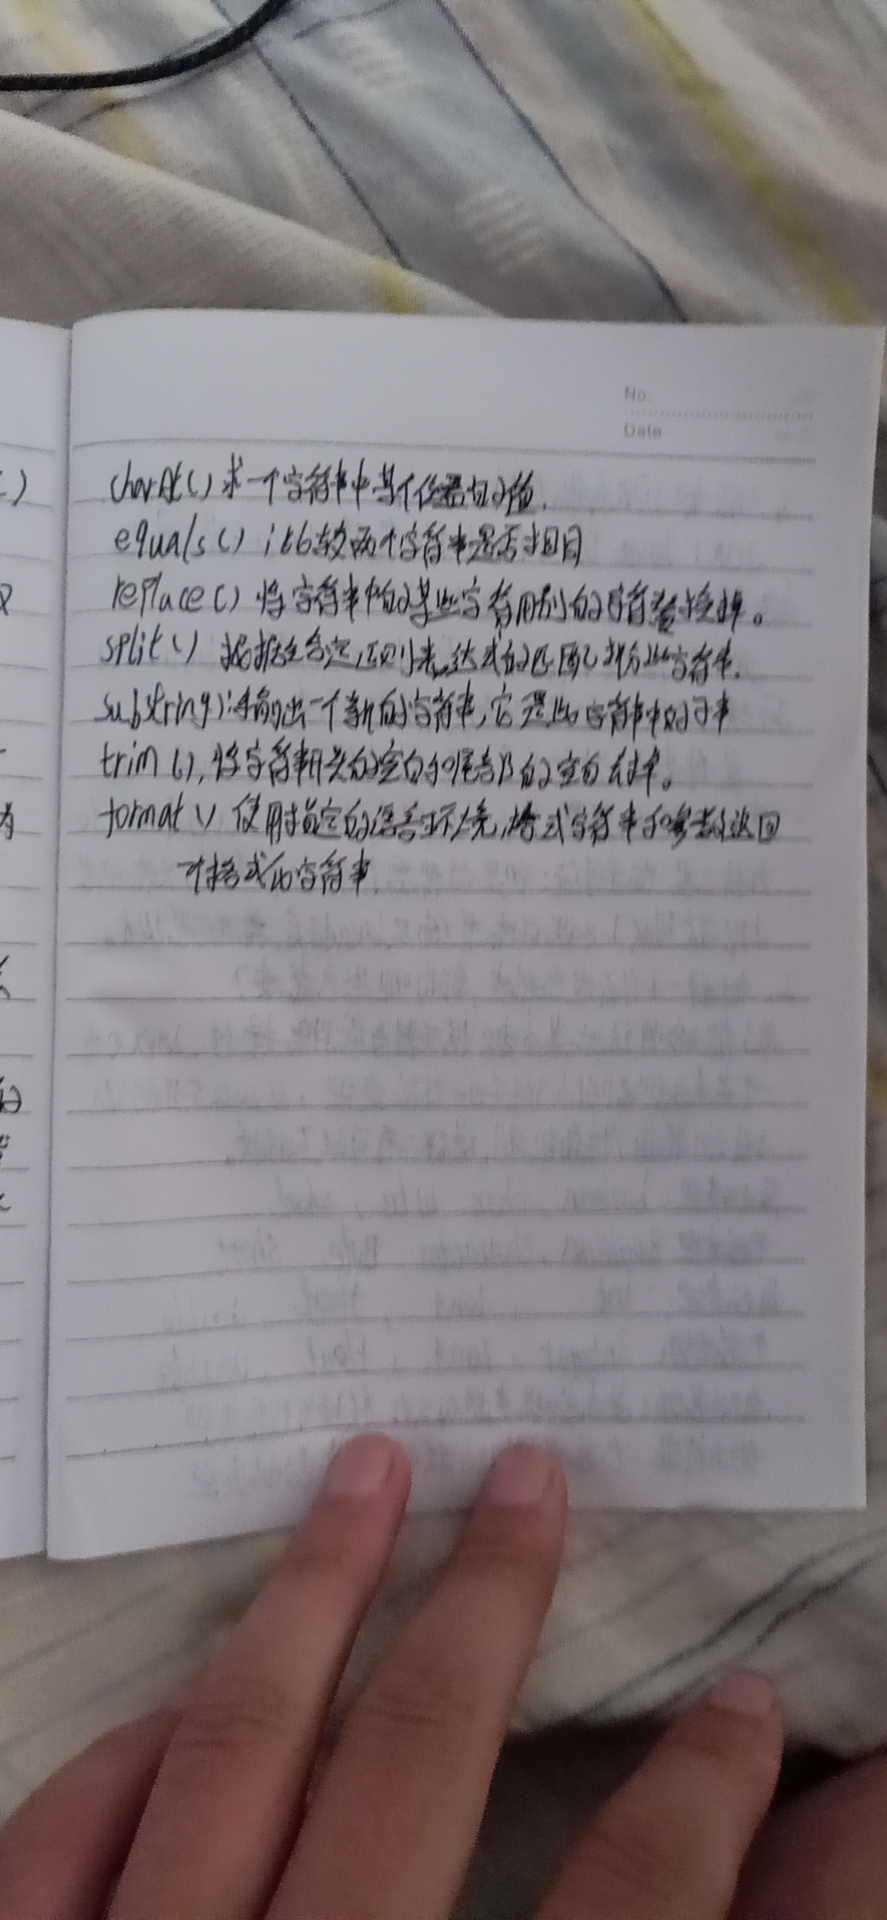 No.
Date
charAt() 求一个字符串中某个位置的值.
equals() 比较两个字符串是否相同
replace() 将字符串中的某些字符用别的字符替换掉。
split() 根据给定正则表达式的匹配拆分此字符串.
substring) 输出一个新的字符串,它是此字符串中的子串
trim(), 将字符串开头的空白和尾部的空白去掉。
format() 使用指定的语言环境,格式字符串和参数返回
格式的字符串.